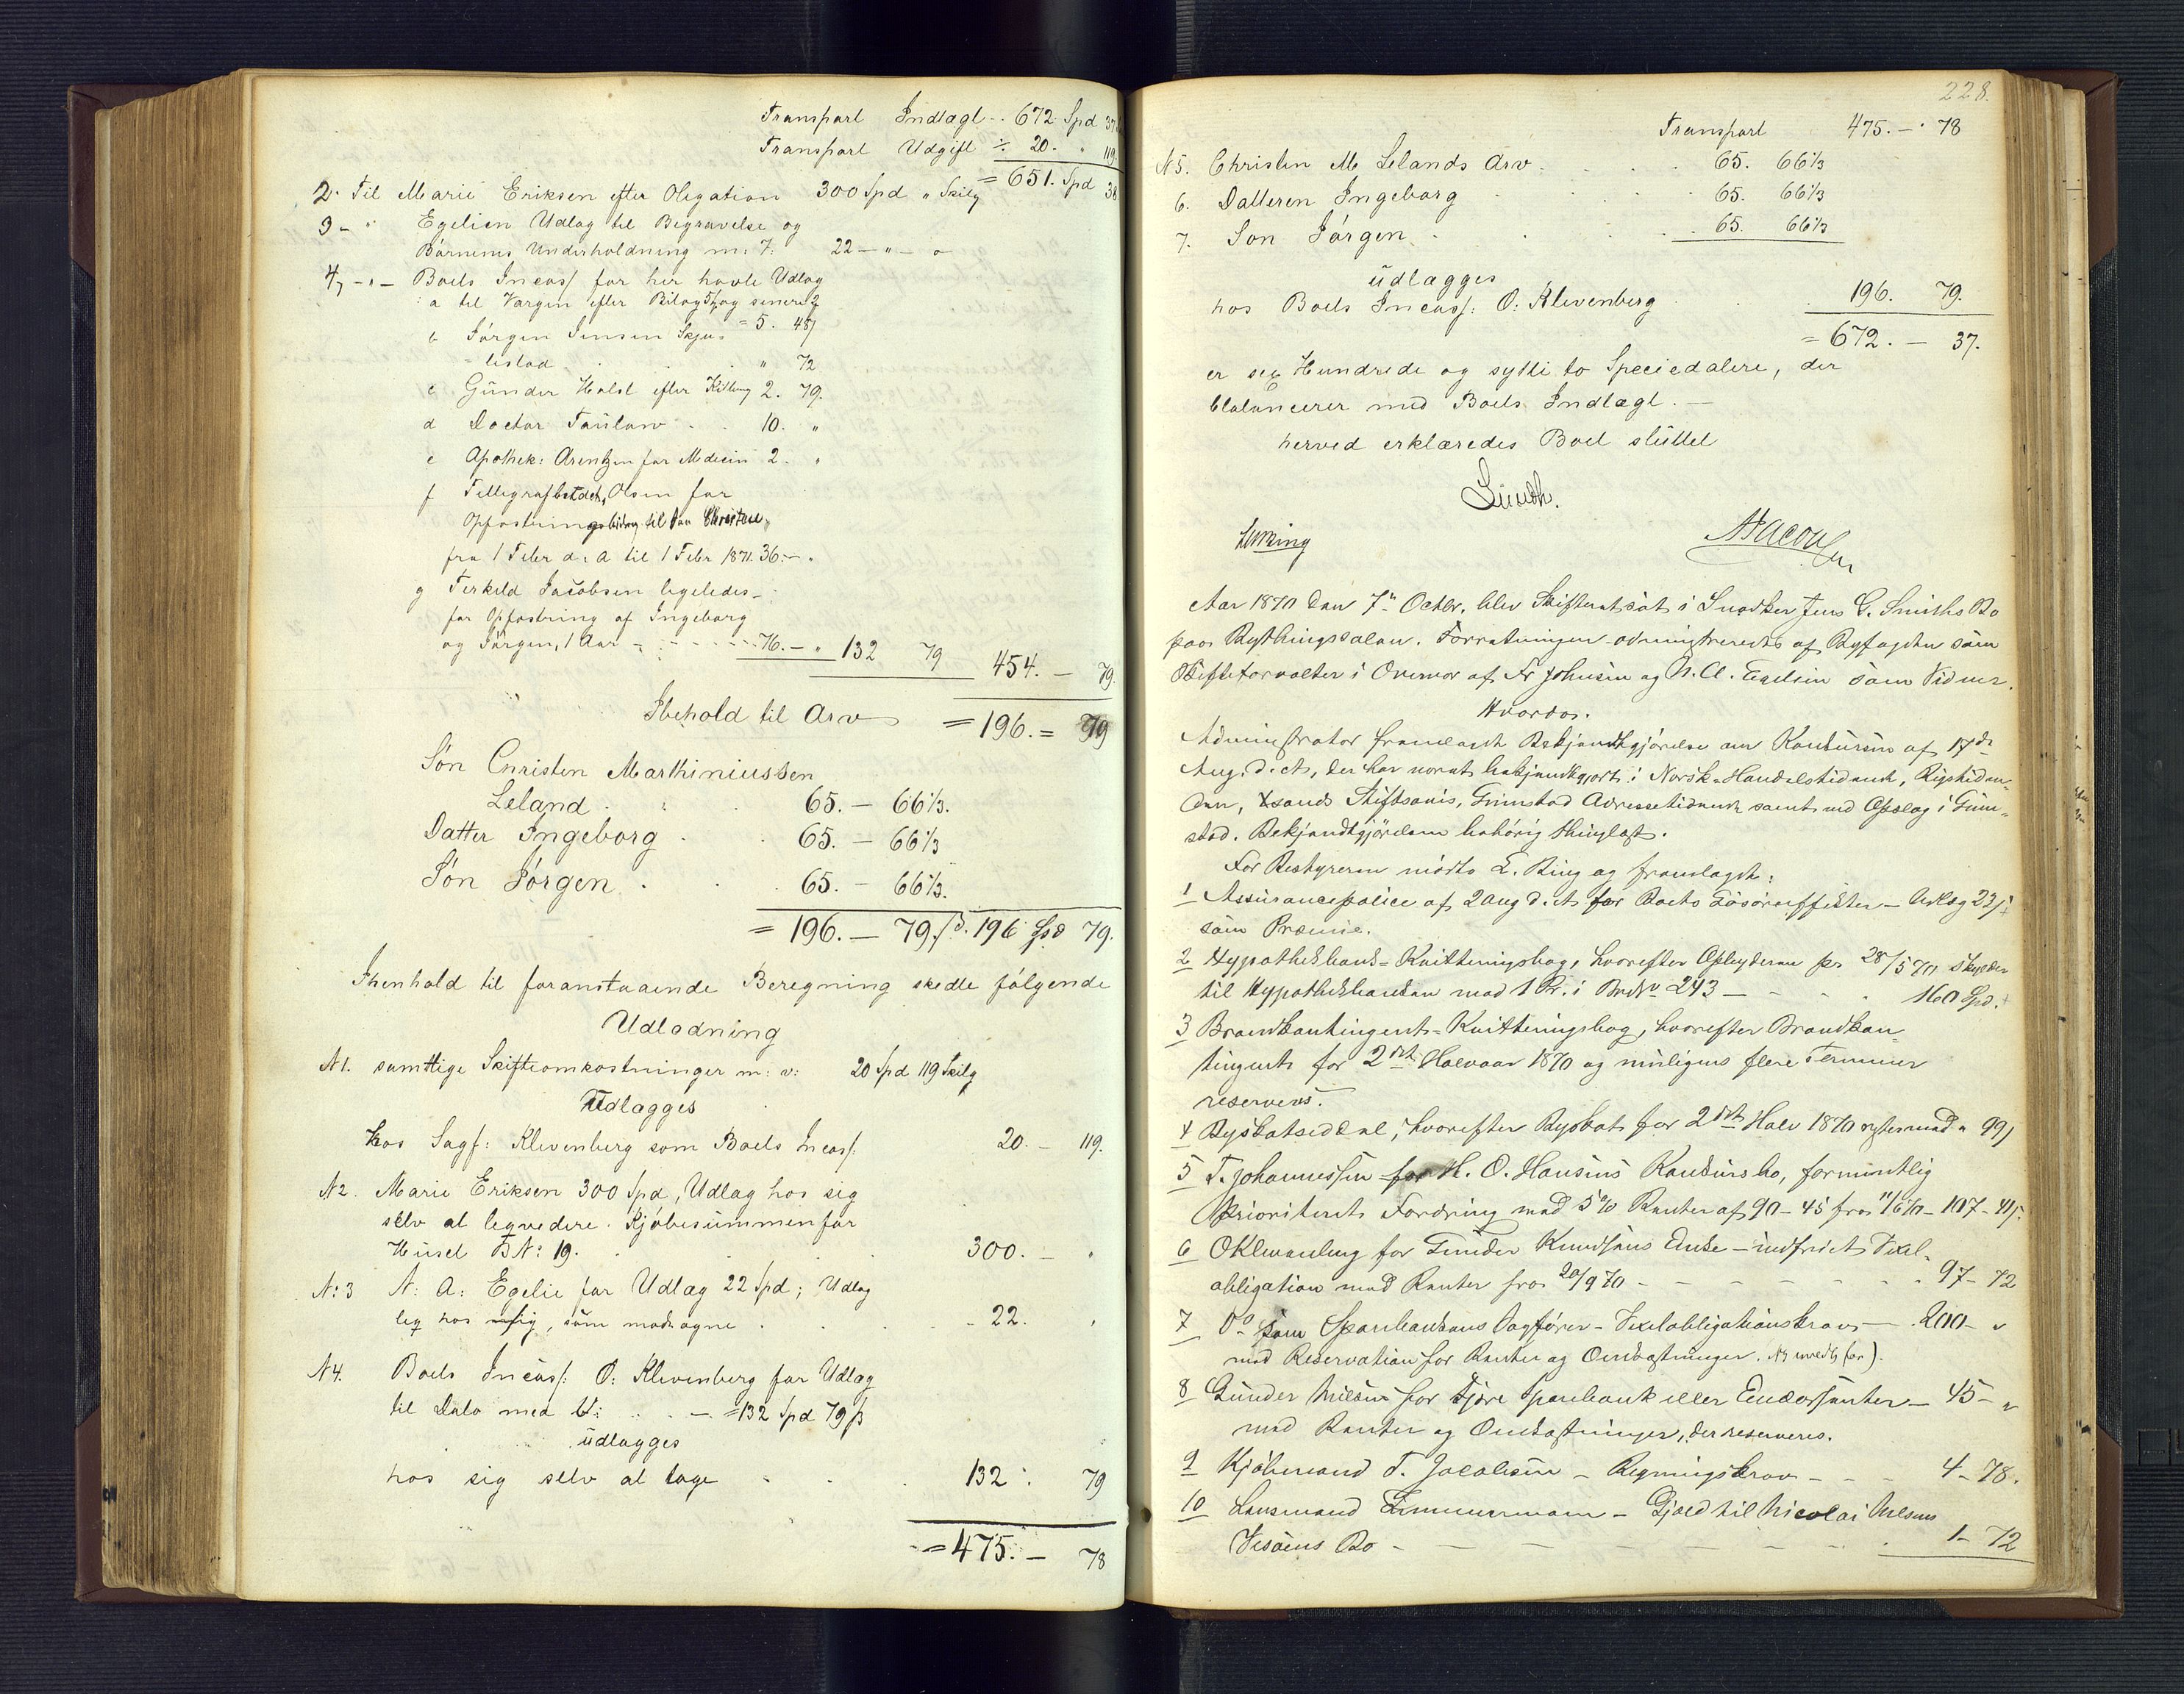 Transport Indlagt - 672 Spd 37
Transport Udgift ÷ 20. " 119.
= 651. Spd 38
2. Til Marie Eriksen efter Obligation 300 Spd " Skilg
3 - " Egelien Udlag til Begravelse og
Børnenes Underholdning m: 7: 22 - " -
4, - " - Boets Incass/ for her havte Udlag
a til Vargen efter Bilag og senere
= 5. 45/
b Jørgen Jensen Skju-
lestad " 72
c Gunder Holst efter Kitteng 2. 79.
d Doctor Taulow 10. "
e Apothek: Arentzen for Medecin 2. "
f Tellegrafbestder, Olsen for
Opfostringsbidrag til Søn Christen
fra 1 Febr d: A til 1 Febr 1871. 36. - "
g Terkeld Jacobsen ligeledes -
for Opfostring af Ingeborg
og Jørgen, 1 Aar - 76. - " 132 79 454. - 79.
Ibehold til Arv = 196. = 79
Søn Christen Marthiniussen
Leland 65. - 66 1/3.
Datter Ingeborg 65. - 66 1/3
Søn Jørgen 65. - 66 1/3.
= 196. - 79. 196 Spd 79.
Ihenhold til foranstaaende Beregning skedte følgende
Udlodning
N1. samtlige Skifteomkostninger m: v: 20 Spd 119 Skilg
Udlægges
hos Sagf: Klevenberg som Boets Incass/. 20. - 119.
N2. Marie Eriksen 300 Spd, Udlag hos sig
selv at liqvedere Kjøbesummen for
Huset BN: 19. 300. - "
N: 3 N: A: Egelie for Udlæg 22 Spd; Udlag
hos sig, som modtagne 22. "
N4. Boets Incass/: O: Klevenberg for Udlæg
til Dato med = 132 Spd 79 ß
udlægges
hos sig selv at tage 132 : 79
= 475. - 78
228.
Transport 475. - 78
N5. Christen M Lelands Arv 65. 66 1/3
6. Datteren Ingeborg 65. 66 1/3
7. Søn Jørgen 65. 66 1/3
udlægges
hos Boets Incass/: O: Klevenberg 196. 79.
= 672. - 37.
er sex Hundrede og sytti to Speciedalere, der
balancerer med Boets Indtægt. -
herved erklæredes Boet sluttet
Aar 1870 den 7de Octbr. blev Skifteret sat i Snedker Jens G. Smiths Bo
paa Bythingssalen. Forretningen administreredes af Byfogden som
Skifteforvalter i Overvær af Fr Johnsen og N. A. Egelien som Vidner.
Hvorda.
Administrator fremlagde Bekjendtgjørelse om Konkursen af 17de
Aug. d. A, der har været bekjendtgjort i Norsk-Handelstidende, Rigstiden-
den, Xsands Stiftsavis, Grimstad Adressetidende samt ved Opslag i Grim-
stad. Bekjendtgjørelsen behørig thinglæst.
For Bestyreren mødte L. Ring og fremlagde:
1 Assurancepolice af 2 Aug d. A for Boets Løsøreeffekter - Udlæg 23/
som Præmie.
2 Hypothekbank-Kvitteringsbog, hvorefter Opbyderen pr 28/5 70 skylder
til Hypothekbanken mod 1 Pr. i BndN 243 - 160 Spd.
3 Brandkontingents-Kvitteringsbog, hvorefter Brandkon-
tingents for 2det Halvaar 1870 og muligens flere Terminer
reserveres.
4 Byskatseddel, hvorefter Byskat for 2det Halv 1870 " 99/
5 T. Johannessen for H. O. Hansens Konkursbo, formentlig
Prioritet Fordring med 5% Renter af 90 - 45 fra 11/6 70 - 107 - 41/
6 O Klevenberg for Gunder Knudsens Enke - indfriet Vexel-
obligation med Renter fra 20/9 70 - 97 - 72
7 Do som Sparebankens Sagfører - Vexelobligationskrav - 200 - "
med Reservation for Renter og Omkostninger.
8 Gunder Nilsen for Fjære Sparebank eller Endossenter - 45 - "
med Renter og Omkostninger, der reserveres.
9 Kjøbmand T. Jacobsen - Regningskrav - 4 - 78.
10 Lensmand Zimmermann - Gjæld til Nicolai Nilsens
Bo - 1 - 72